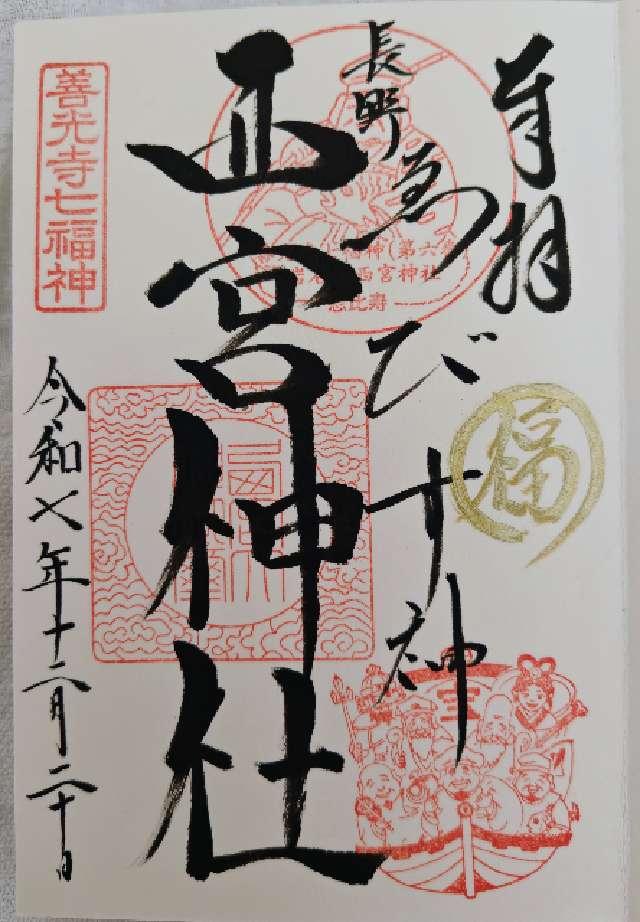 奉拝
長野ゑびす神
西宮神社
令和七年十二月二十日
善光寺七福神
福神(第六
西宮神社
恵比寿
福